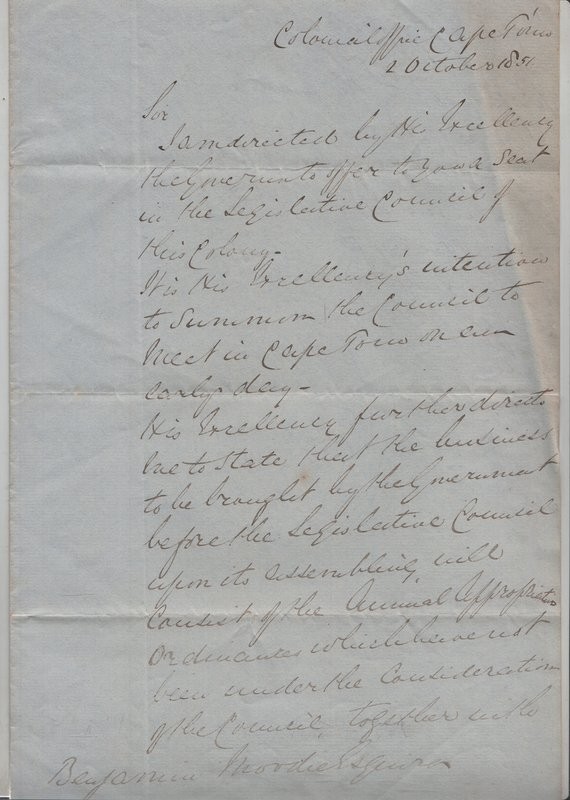 Colonial Office Cape Town
2 October 1851
Sir
I am directed by His Excellency
the Governor to offer to you a Seat
in the Legislative Council of
this Colony -
It is His Excellency's intention
to Summon the Council to
Meet in Cape Town on an
early day -
His Excellency further directs
me to State that the business
to be brought by the Government
before the Legislative Council
upon its assembling, will
Consist of the Annual Appropriation
Ordinances which have not
been under the Consideration
of the Council, together with
Benjamin Moodie Esquire